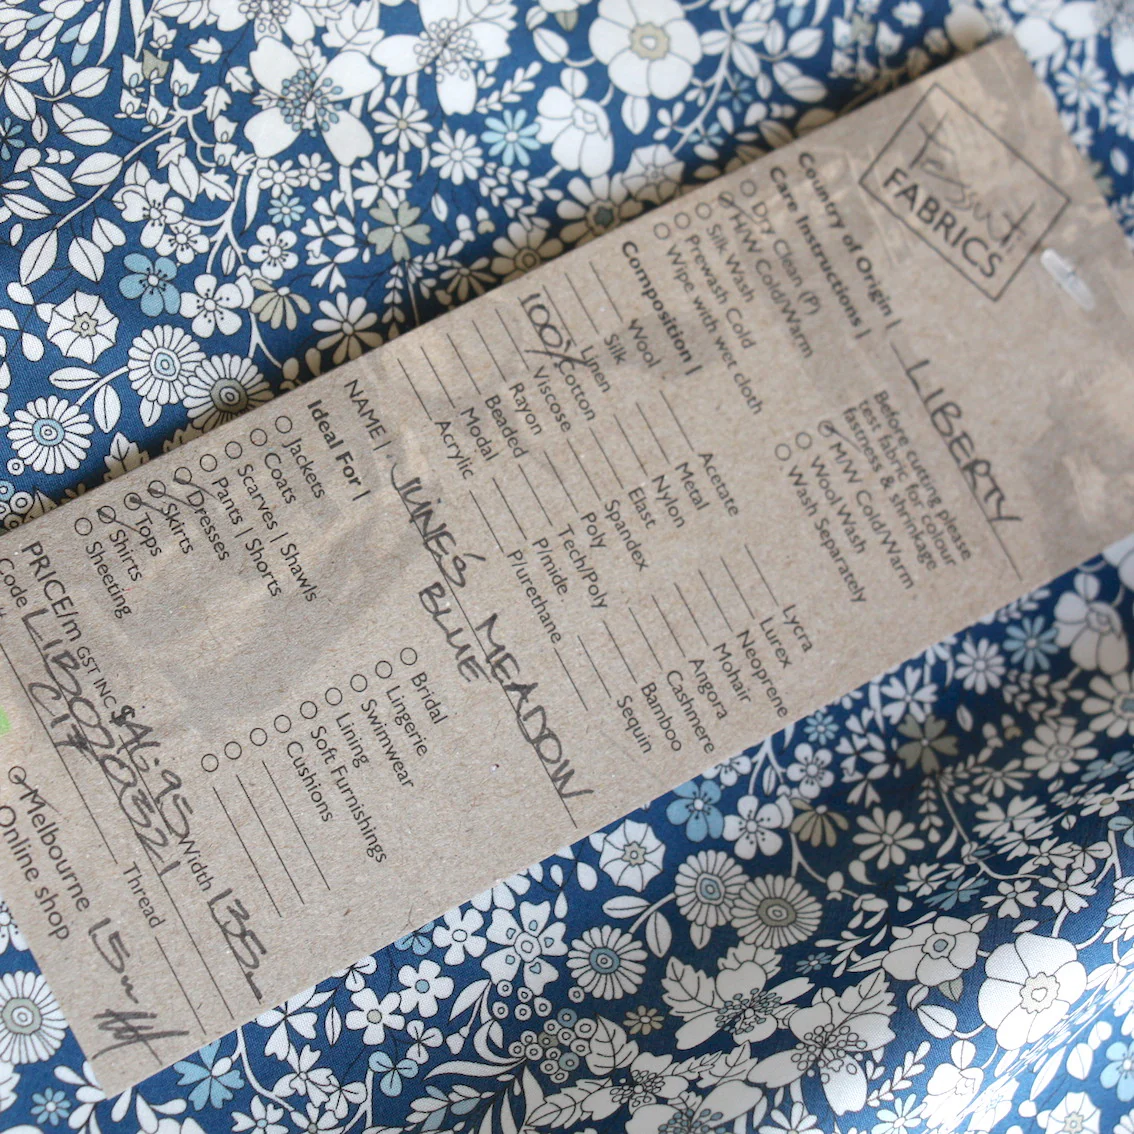 Tessuti
FABRICS
Country of Origin | LIBERTY
Care Instructions |
Before cutting please
test fabric for colour
fastness & shrinkage
Dry Clean (P)
M/W Cold/Warm
Silk Wash
Prewash Cold
Wipe with wet cloth
M/W Cold/Warm
Wool Wash
Wash Separately
Composition |
Wool
Silk
Linen
100% Cotton
Viscose
Rayon
Beaded
Modal
Acrylic
Acetate
Metal
Nylon
Elast
Spandex
Poly
Tech/Poly
P/mide
P/urethane
Lycra
Lurex
Neoprene
Mohair
Angora
Cashmere
Bamboo
Sequin
NAME | JUNE'S MEADOW
BLUE
Ideal For |
Jackets
Coats
Scarves | Shawls
Pants | Shorts
Dresses
Skirts
Tops
Shirts
Sheeting
Bridal
Lingerie
Swimwear
Lining
Soft Furnishings
Cushions
PRICE/m GST INC $46.95 Width 135
Code LIB0720321
C17
Thread
Melbourne 15m
Online shop